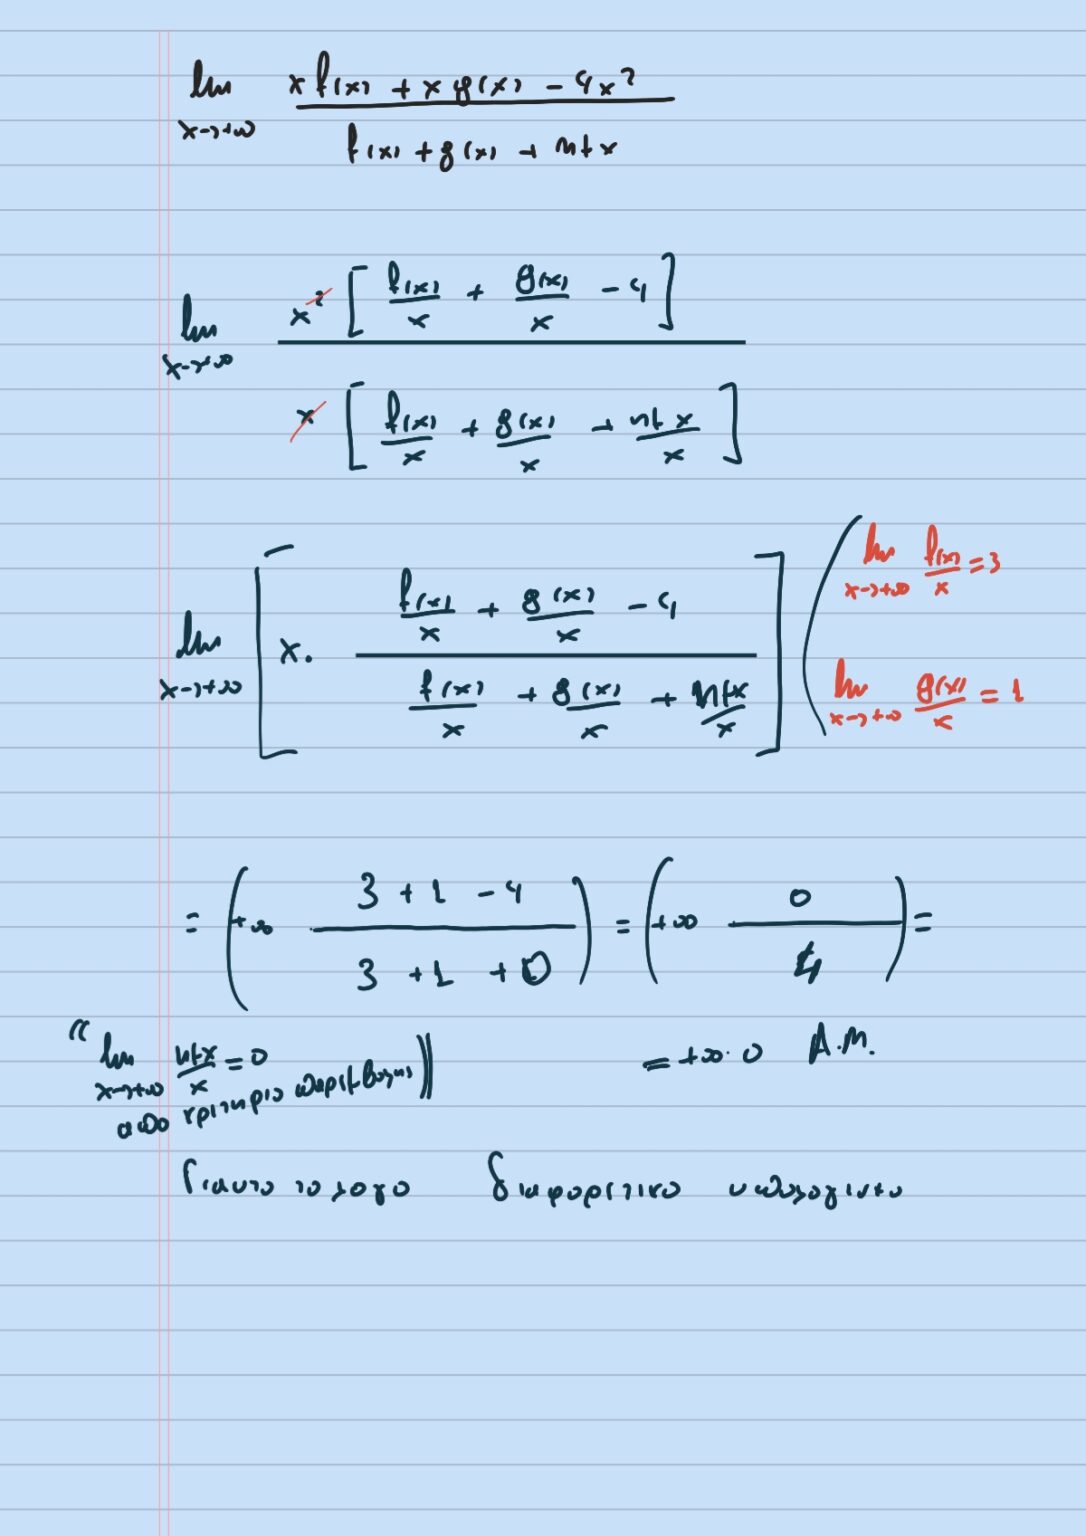 lim x→+∞ (x f(x) + x g(x) - 4x²) / (f(x) + g(x) + ημx)
lim x→+∞ x² [ f(x)/x + g(x)/x - 4 ] / x [ f(x)/x + g(x)/x + ημx/x ]
lim x→+∞ [ x · ( f(x)/x + g(x)/x - 4 ) / ( f(x)/x + g(x)/x + ημx/x ) ]
( lim x→+∞ f(x)/x = 3
lim x→+∞ g(x)/x = 1
= ( +∞ (3 + 1 - 4) / (3 + 1 + 0) ) = ( +∞ 0/4 ) =
" lim x→+∞ ημx/x = 0
από κριτήριο παρεμβολης )
= +∞· 0 Α.Μ.
Γιαυτο το λογο διαφορετικο υπολογισμο